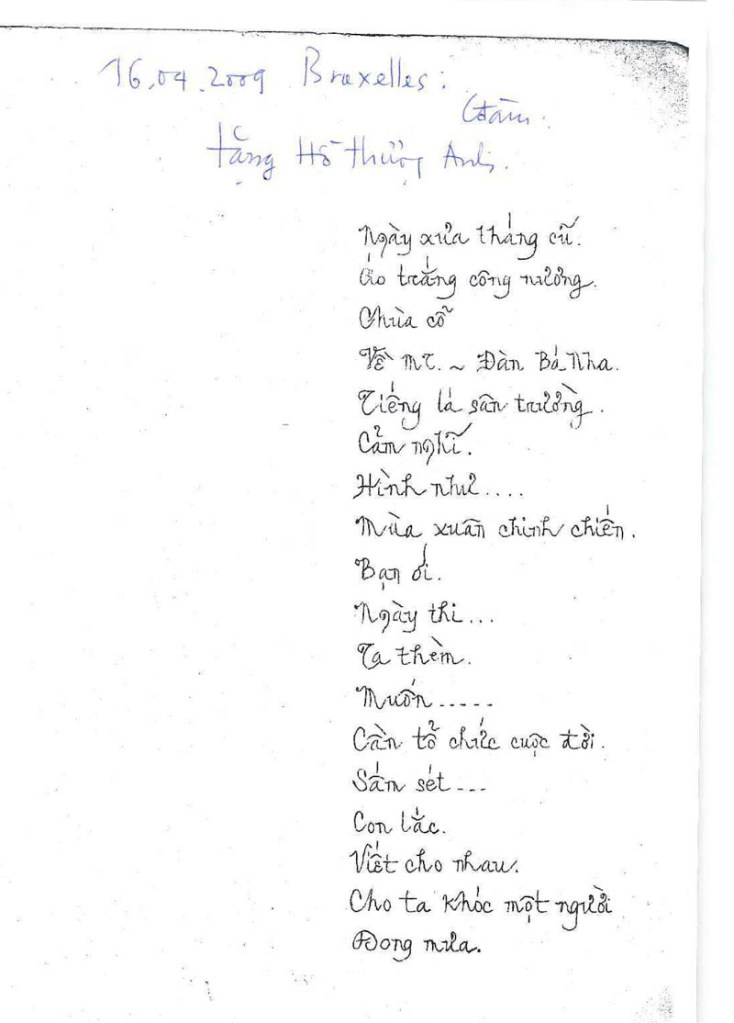 16.04.2009 Bruxelles:
tặng Hồ Trường Anh.
Ngày xưa tháng cũ.
Áo trắng công nương.
Chùa cổ
Về MT. ~ Đàn Bá Nha.
Tiếng lá sân trường.
Cảm nghĩ.
Hình như....
Mùa xuân chinh chiến.
Bạn ơi.
Ngày thi...
Ta thèm.
Muốn.....
Cần tổ chức cuộc đời.
Sấm sét...
Con lắc.
Viết cho nhau.
Cho ta khóc một người
Đong mưa.